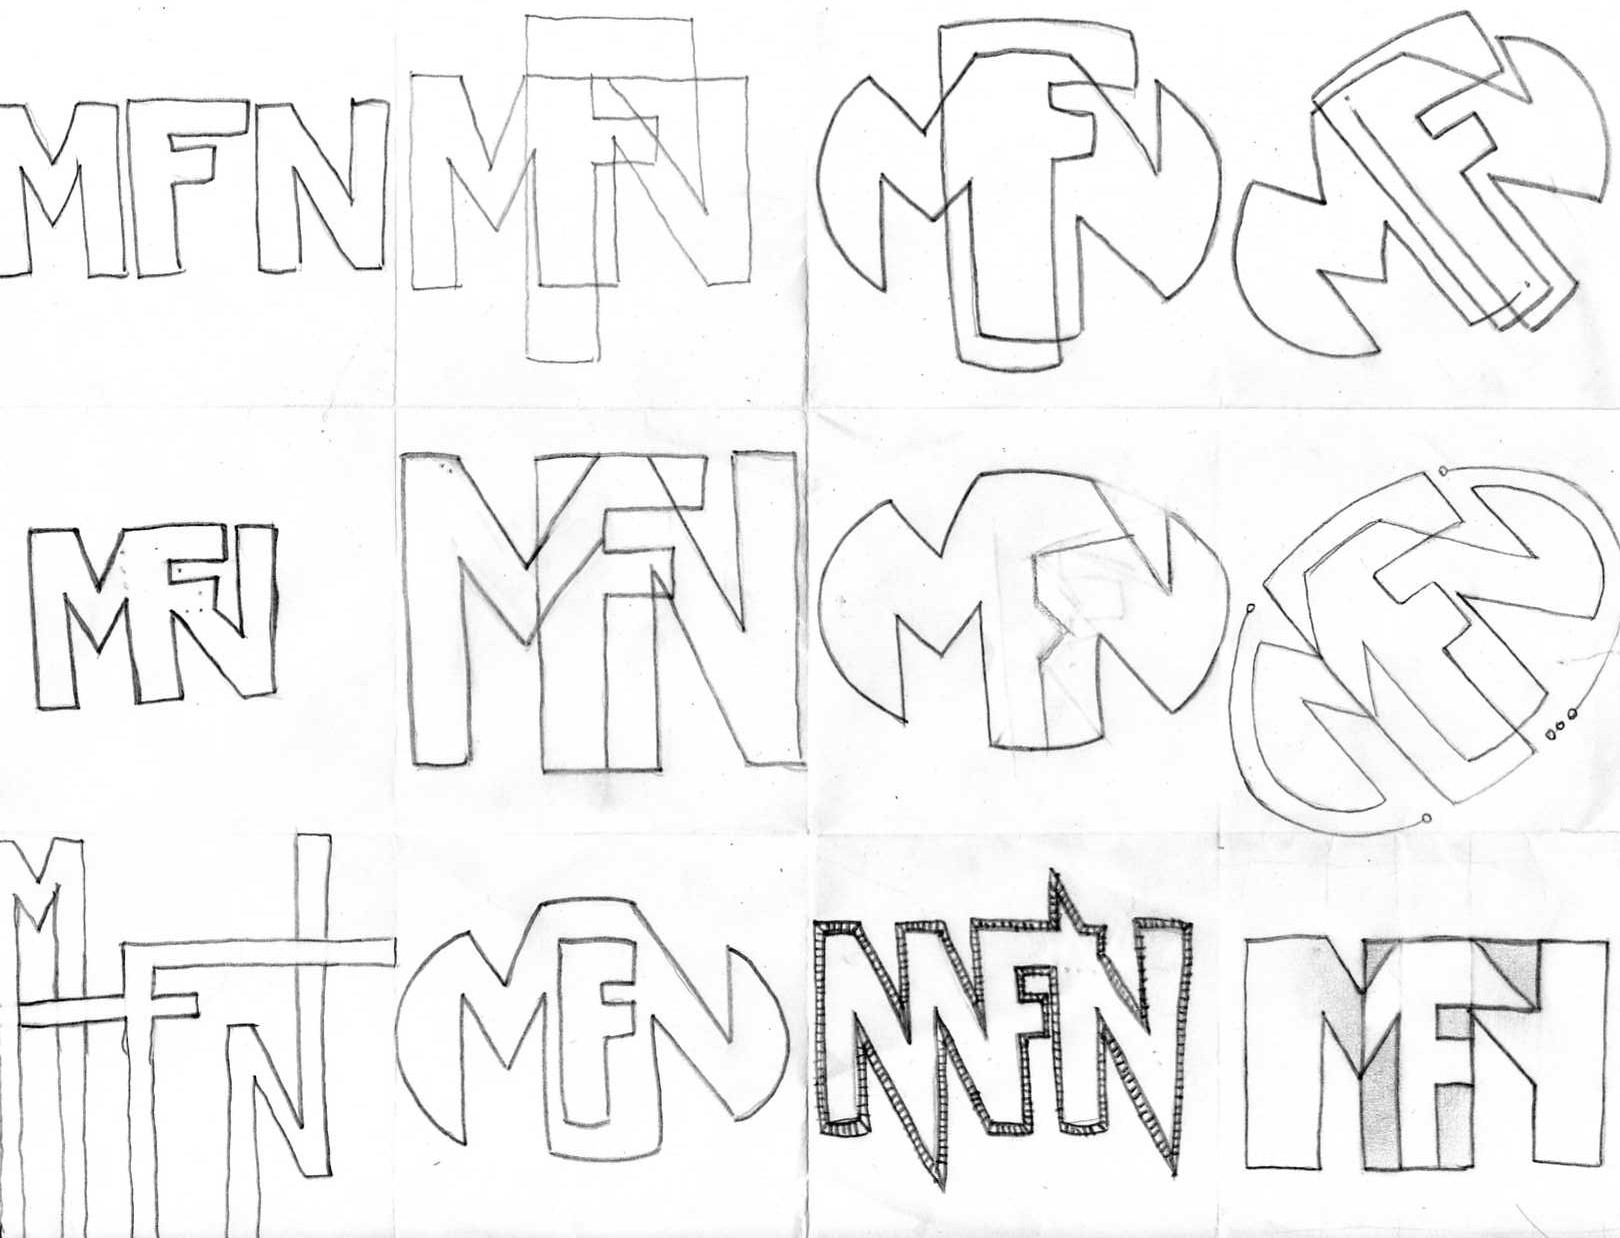 MFN MFN MFN MFN
MFN MFN MFN MFN
MFN MFN MFN MFN